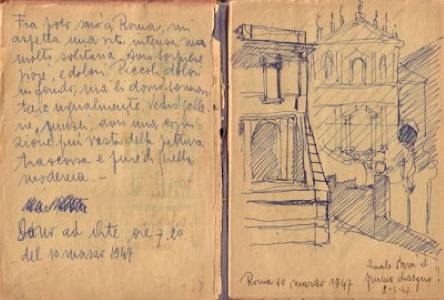 Fra poco sarò a Roma, mi
aspetta una vita intensa ma
molto solitaria. Avrò sorprese
gioje, e dolori. Piccoli dolori
in fondo, ma li dovrò
ugualmente. Vedrò
avrò una
più vasta della pittura
trascorsa e pure di quella
moderna. –
Sono ad Orte ore 7.20
del 10 marzo 1947
Roma 10 marzo 1947
Quale sarà il
primo disegno?
8-3-47